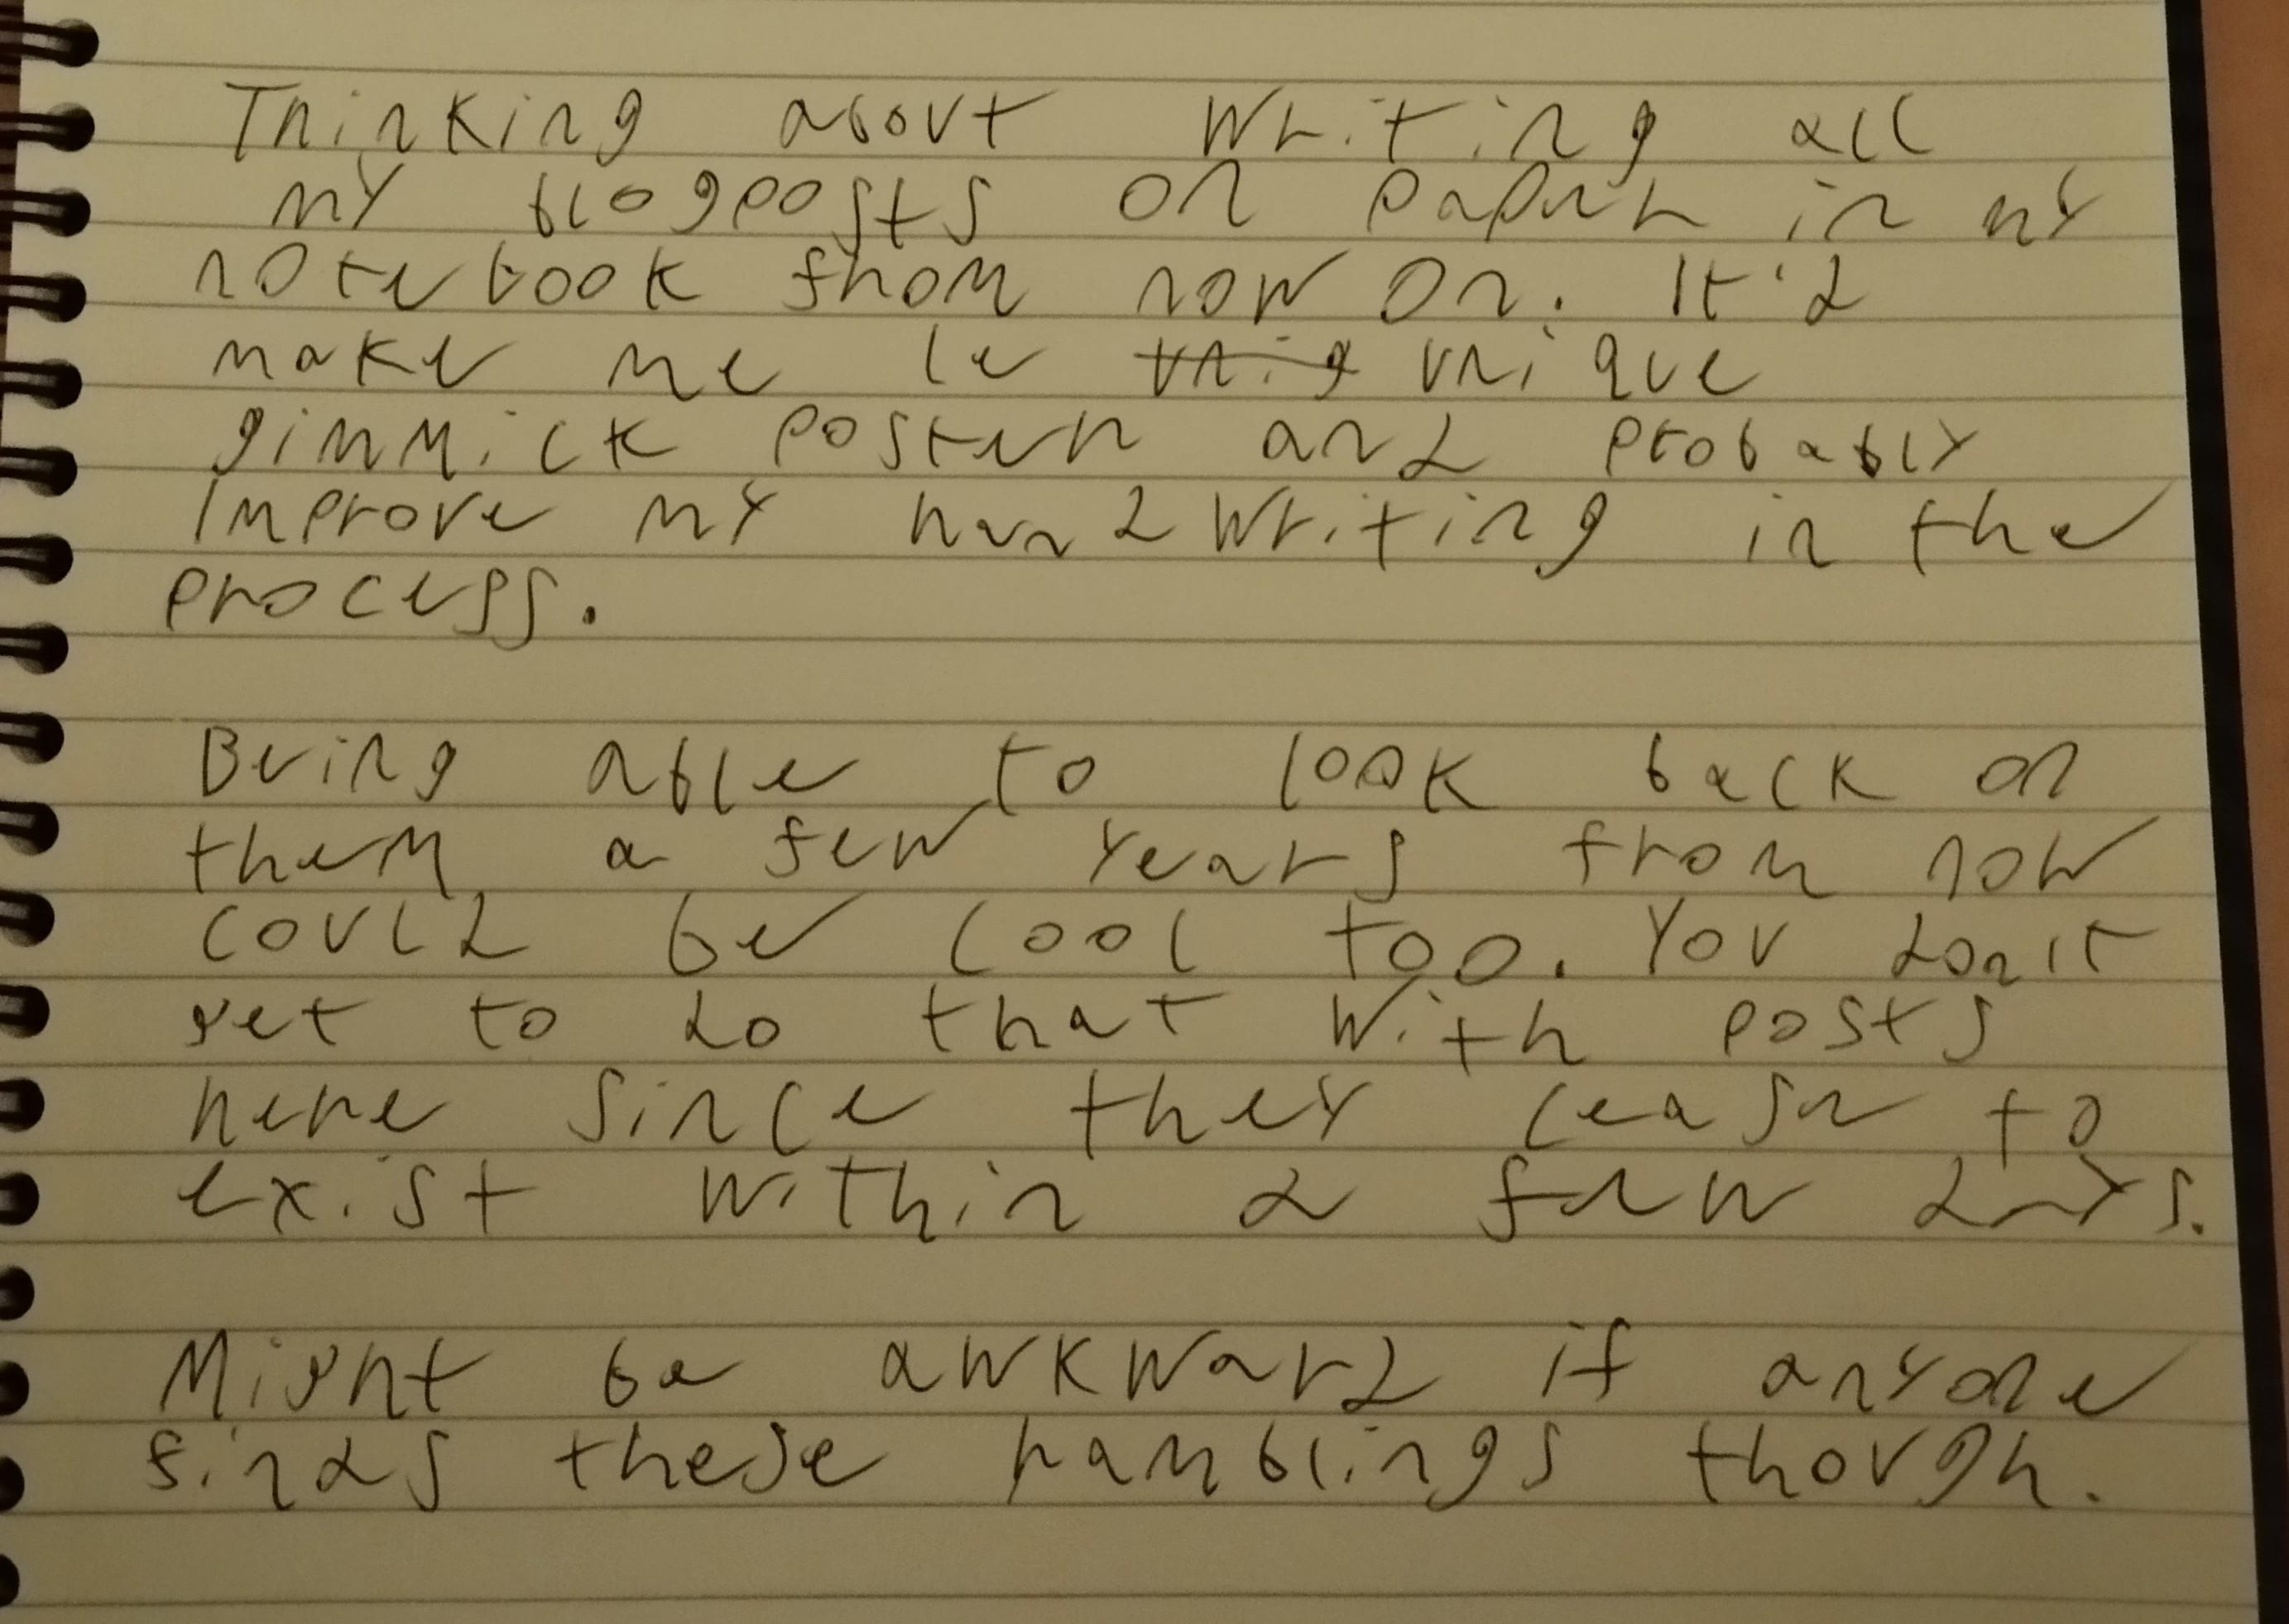 Thinking about writing all
my blogposts on paper in my
notebook from now on. It'd
make me le unique
gimmick poster and probably
improve my handwriting in the
process.
Being able to look back on
them a few years from now
could be cool too. You don't
get to do that with posts
here since they cease to
exist within a few days.
Might be awkward if anyone
finds these ramblings though.